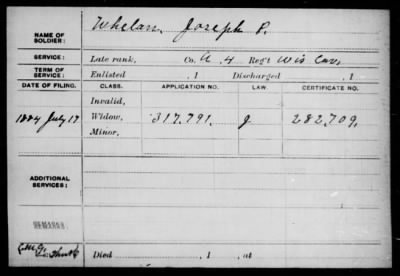 NAME OF SOLDIER: Whelan, Joseph P.
SERVICE: Late rank, Co. A 4 Reg't Wis Cav.
TERM OF SERVICE: Enlisted , 1 Discharged , 1
DATE OF FILING. CLASS. APPLICATION NO. LAW. CERTIFICATE NO.
Invalid,
1884 July 17 Widow, 317,791. J 282,709.
Minor,
ADDITIONAL SERVICES:
REMARKS:
Died , 1 , at